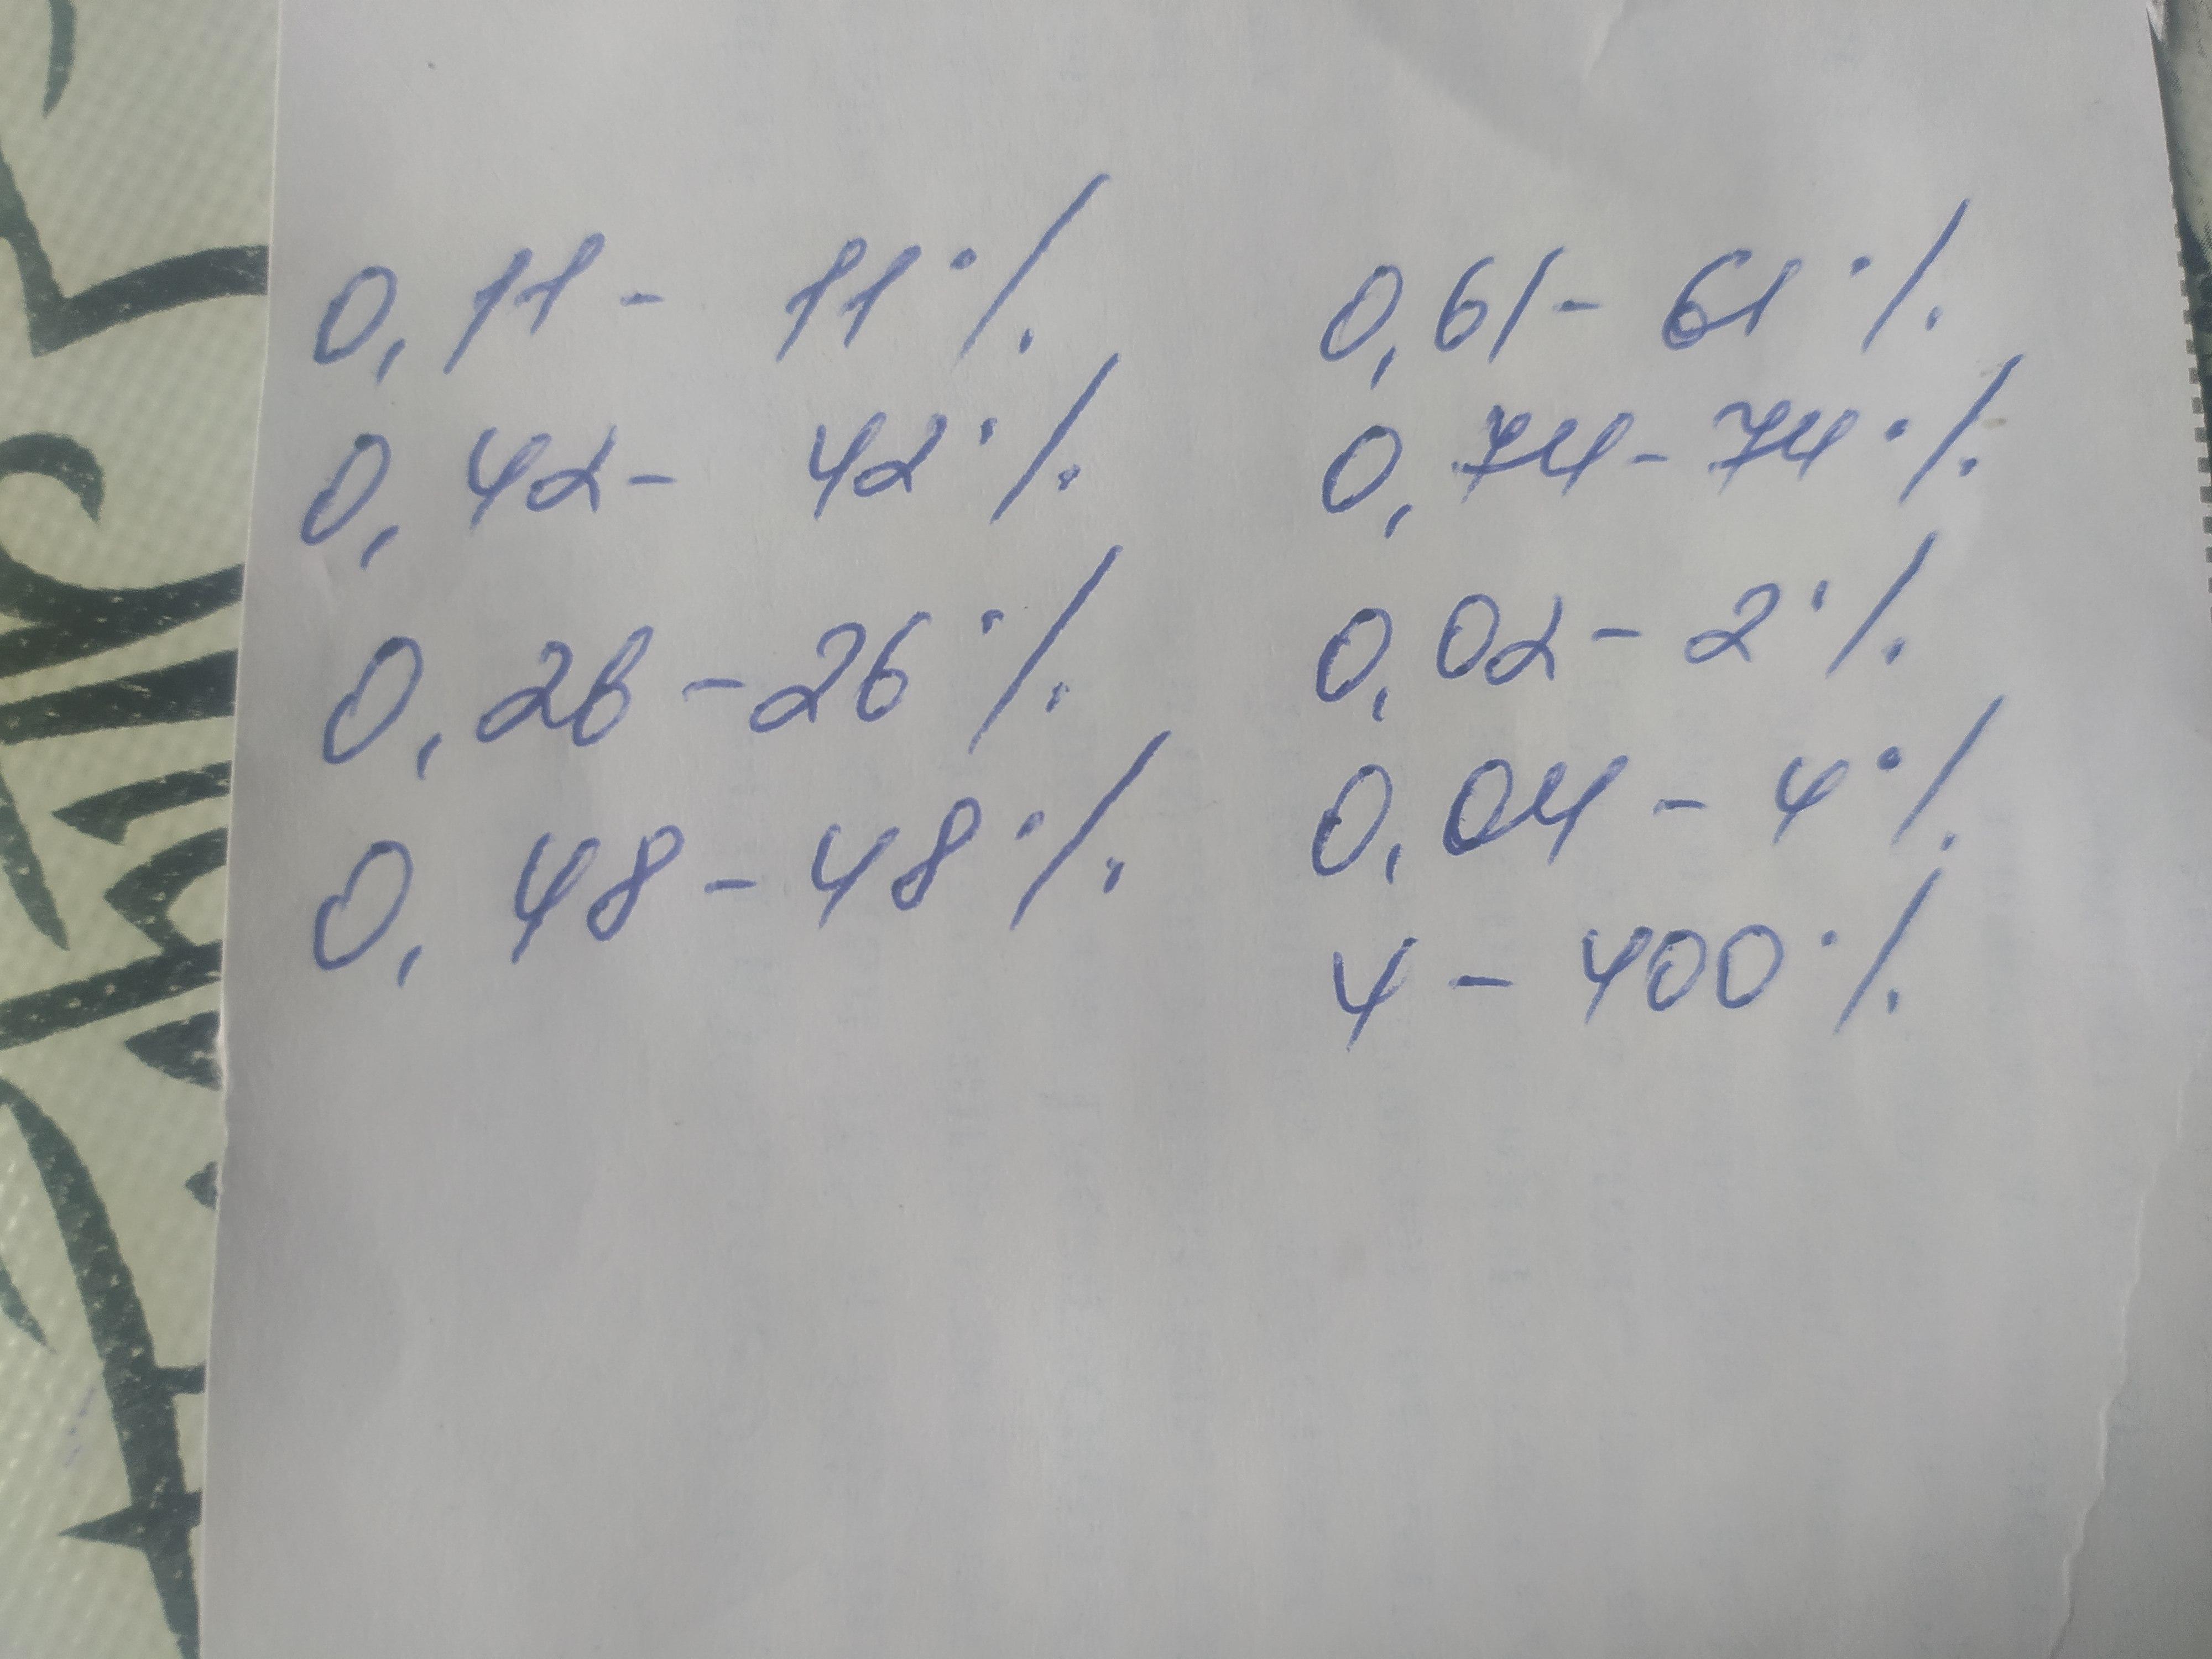 0,11 - 11%
0,42 - 42%
0,26 - 26%
0,48 - 48%
0,61 - 61%
0,74 - 74%
0,02 - 2%
0,04 - 4%
4 - 400%